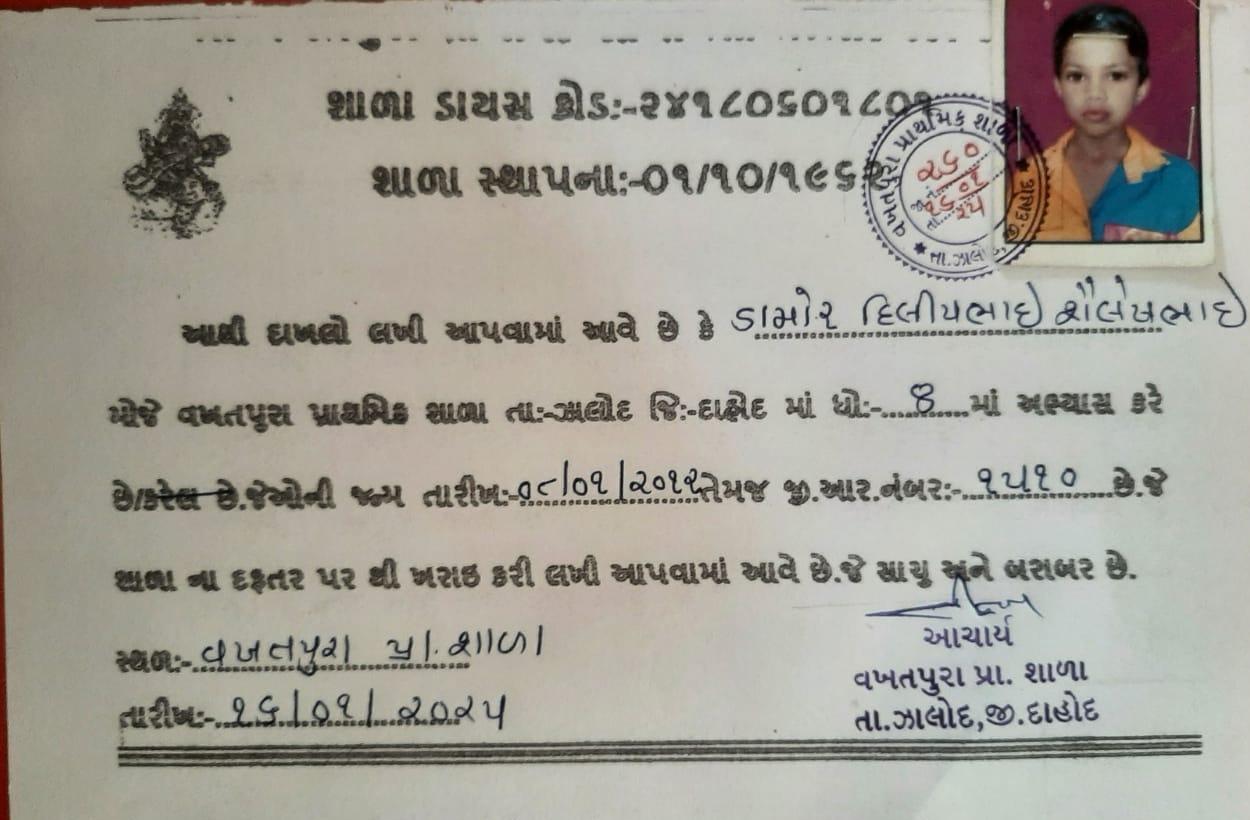 શાળા ડાયસ કોડ:-૨૪૧૮૦૬૦૧૮૦૧
શાળા સ્થાપના:-૦૧/૧૦/૧૯૬૨
વખતપુરા પ્રાથમિક શાળા
૨૬૦
તા. ૧૬/૦૧/૨૫
તા.ઝાલોદ, જી.દાહોદ
આથી દાખલો લખી આપવામાં આવે છે કે ડામોર દિલીપભાઇ શૈલેષભાઇ
મોજે વખતપુરા પ્રાથમિક શાળા તા:-ઝાલોદ જિ:-દાહોદ માં ધો:-....8....માં અભ્યાસ કરે
છે/કરેલ છે.જેઓની જન્મ તારીખ:-૦૮/૦૧/૨૦૧૨ તેમજ જી.આર.નંબર:-..૧૫૧૦....છે.જે
શાળા ના દફતર પર થી ખરાઇ કરી લખી આપવામાં આવે છે.જે સાચુ અને બરાબર છે.
સ્થળ:-વખતપુરા પ્રા.શાળા
તારીખ:-..૧૬/૦૧/૨૦૨૫
આચાર્ય
વખતપુરા પ્રા. શાળા
તા.ઝાલોદ,જી.દાહોદ